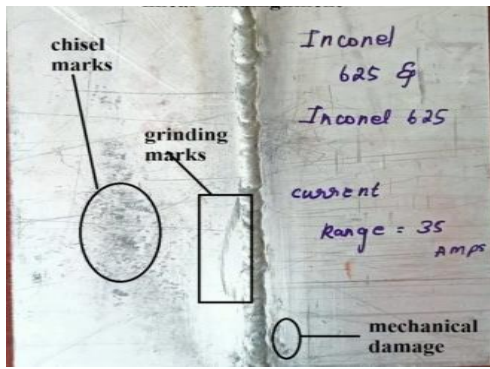 chisel
marks
grinding
marks
Inconel
625 &
Inconel 625
current
Range = 35
Amps
mechanical
damage